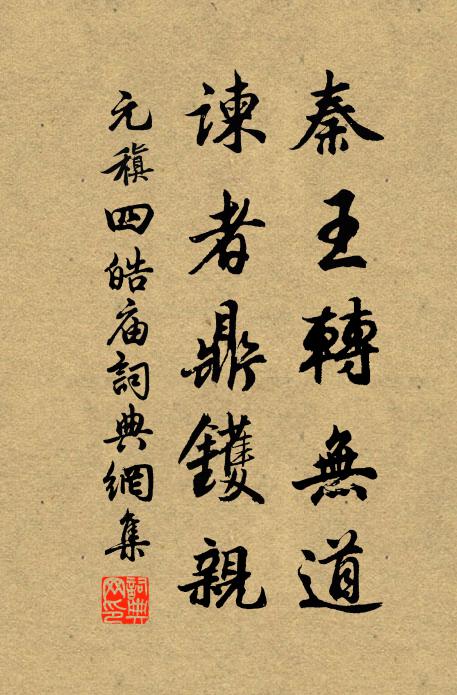 秦王轉無道
諫者鼎鑊親
元稹四皓庙詞典網集
詞典网印